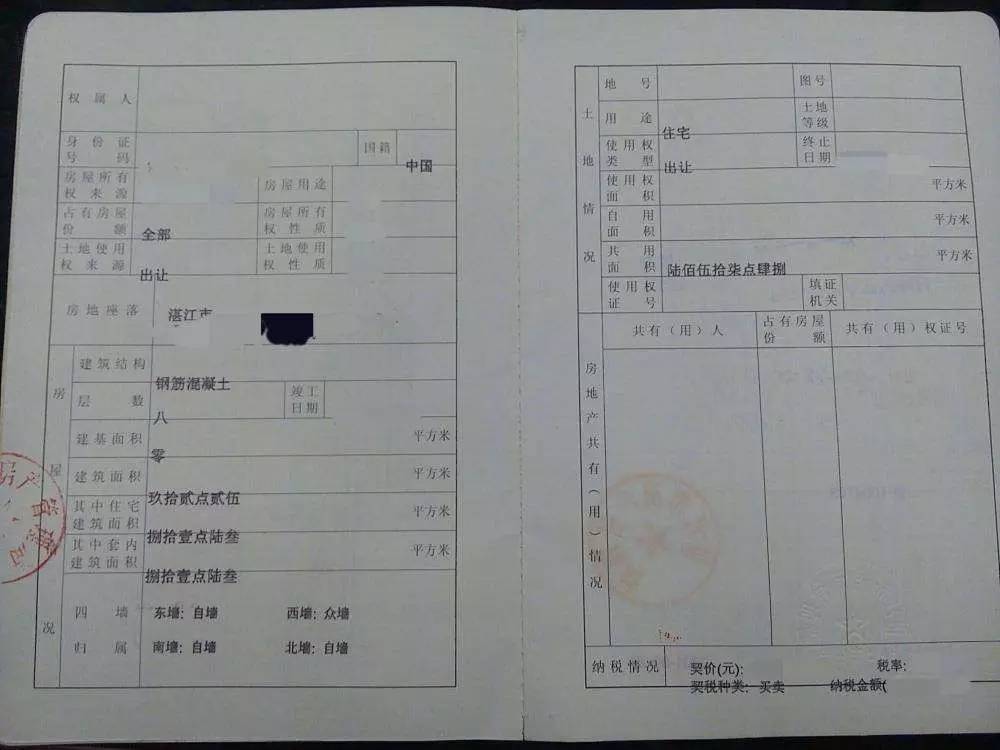 权属人
身份证
号码
国籍
中国
房屋所有
权来源
房屋用途
占有房屋
份额
全部
房屋所有
权性质
土地使用
权来源
出让
土地使用
权性质
房地座落
湛江市
房屋情况
建筑结构
钢筋混凝土
层数
八
竣工
日期
建基面积
零
平方米
建筑面积
玖拾贰点贰伍
平方米
其中住宅
建筑面积
捌拾壹点陆叁
平方米
其中套内
建筑面积
捌拾壹点陆叁
平方米
四墙
归属
东墙：自墙 西墙：众墙
南墙：自墙 北墙：自墙
土地情况
地号
图号
用途
住宅
土地
等级
使用权
类型
出让
终止
日期
使用权
面积
平方米
自用
面积
平方米
共用
面积
陆佰伍拾柒点肆捌
平方米
使用权
证号
填证
机关
房地产共有（用）情况
共有（用）人
占有房屋
份额
共有（用）权证号
纳税情况
契价(元): 税率:
契税种类: 买卖 纳税金额(